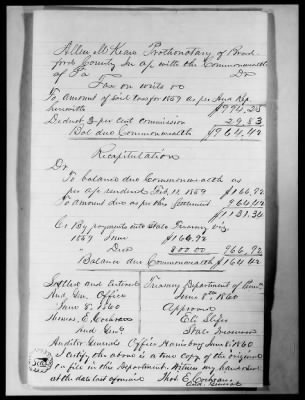 Allen McKean Prothonotary of Brad-
ford County In a/c with the Commonwealth
of Pa Dr
Tax on writs &c
To Amount of for 1859 as per
herewith $994.25
Deduct 3 per cent commission 29.83
Bal due Commonwealth $964.42
Recapitulation
Dr
To balance due Commonwealth as
per a/c rendered Feb. 12 1859 $166.92
To amount due as per this Settlement 964.42
$1131.34
Cr By payments into State Treasury viz
1859 June $166.92
" Decr 800.00 966.92
Balance due Commonwealth $164.42
Settled and Entered
Aud. Gen. Office
June 8. 1860
Thomas E. Cochran
Aud Genl.
Treasury Department of Penna.
June 8th 1860
Approved
Eli Slifer
State Treasurer
Auditor Generals Office Harrisburg June 8. 1860
I certify the above is a true copy of the original
on file in this Department. Witness my hand
at the date last aforesaid Thos. E. Cochran
Aud. General